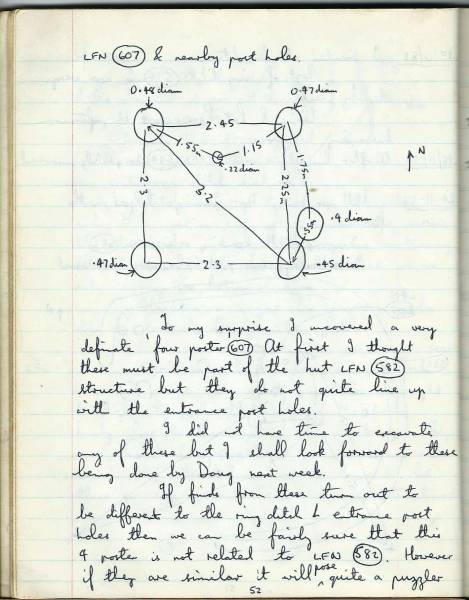 LFN 607 & nearby post holes.
0.48 diam
0.47 diam
2.45
1.55m
1.15
.22 diam
N
1.75m
2.3
3.2
2.25m
.4 diam
.55m
.47 diam
2.3
.45 diam
To my surprise I uncovered a very
definate 'four poster' 607 At first I thought
these must be part of the hut LFN 582
structure but they do not quite line up
with the entrance post holes.
I did not have time to excavate
any of these but I shall look forward to these
being done by Doug next week.
If finds from these turn out to
be different to the ring ditch & entrance post
holes then we can be fairly sure that this
4 poster is not related to LFN 582. However
if they are similar it will pose quite a puzzler
52